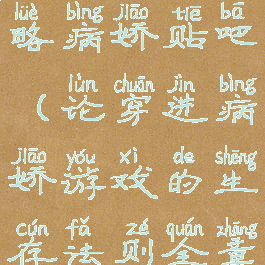 lüè bìng jiāo tiē bā
略病娇贴吧
lùn chuān jìn bìng
（论穿进病
jiāo yóu xì de shēng
娇游戏的生
cún fǎ zé quán zhāng
存法则全章